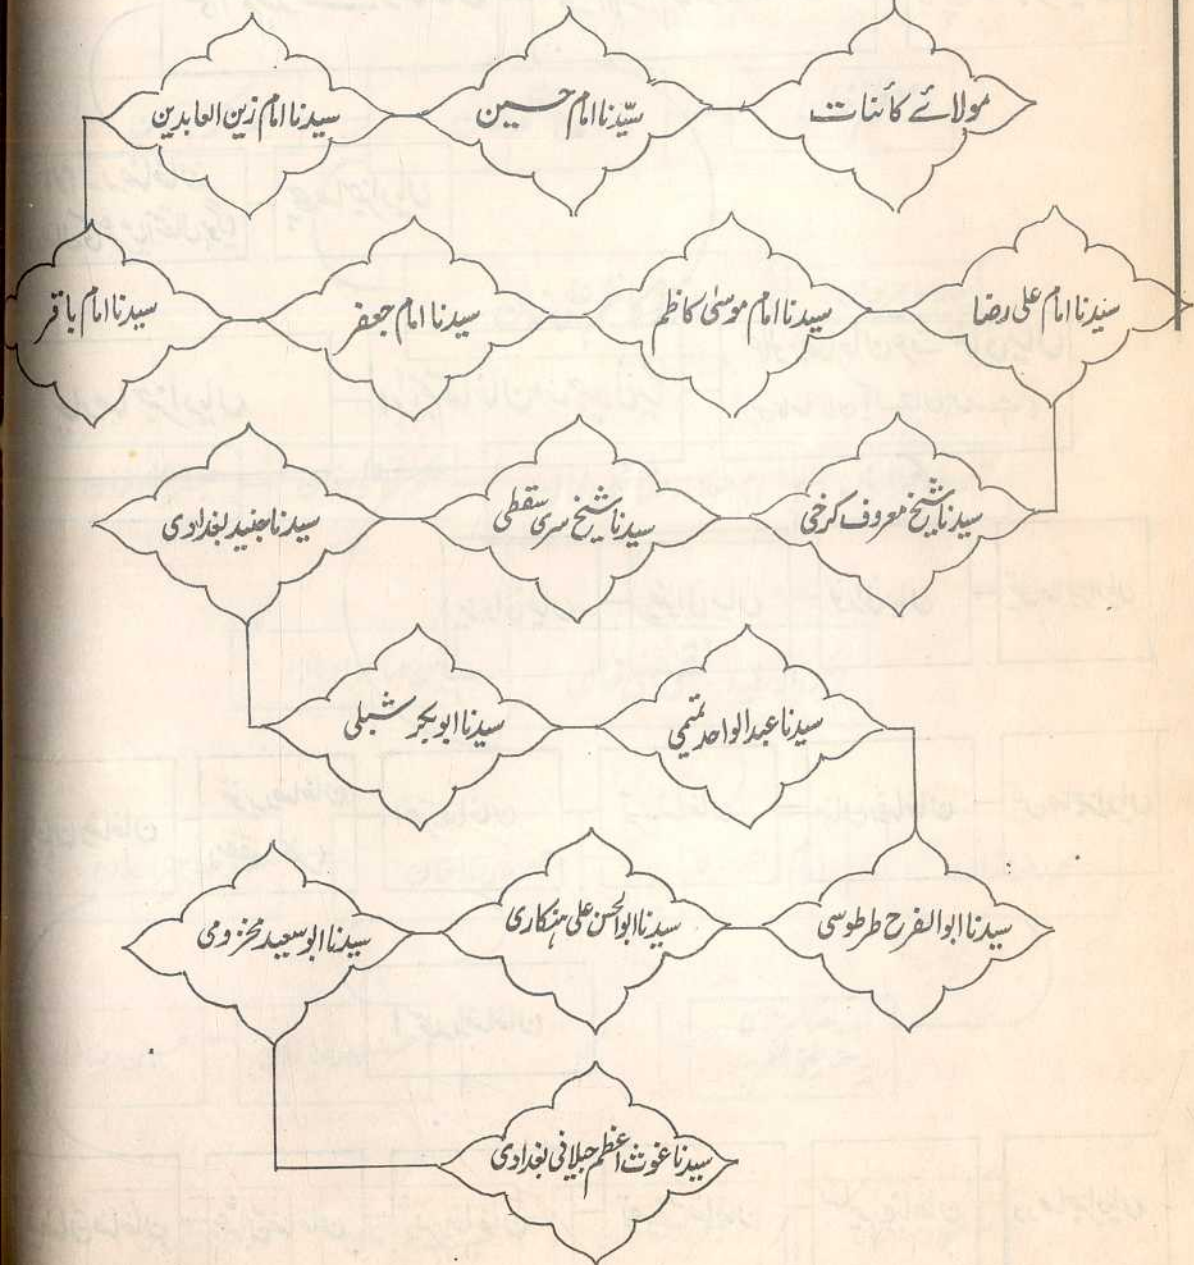 مولائے کائنات
سیّدنا امام حسین
سیدنا امام زین العابدین
سیدنا امام باقر
سیدنا امام جعفر
سیدنا امام موسیٰ کاظم
سیدنا امام علی رضا
سیدنا شیخ معروف کرخی
سیدنا شیخ سری سقطی
سیدنا جنید بغدادی
سیدنا ابوبکر شبلی
سیدنا عبدالواحد تمیمی
سیدنا ابوالفرح طرطوسی
سیدنا ابوالحسن علی ہنکاری
سیدنا ابوسعید مخزومی
سیدنا غوث اعظم جیلانی بغدادی